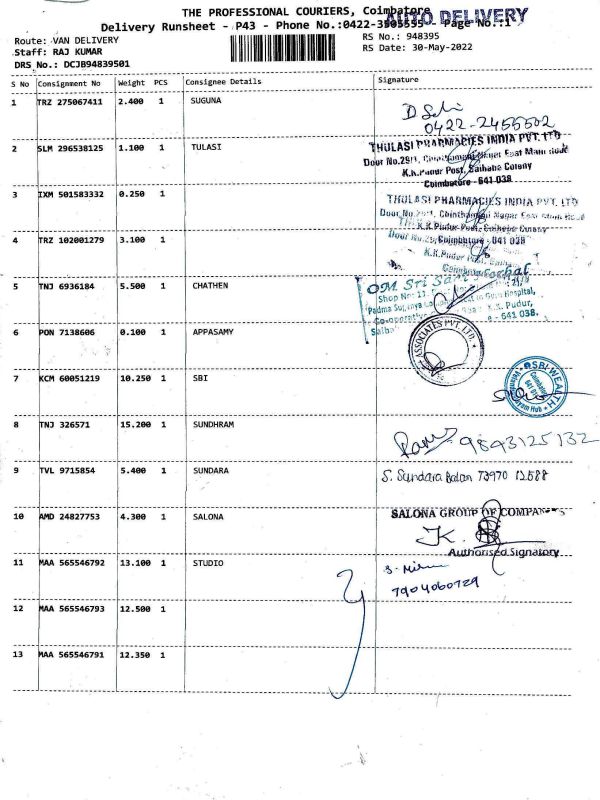 THE PROFESSIONAL COURIERS, Coimbatore
AUTO DELIVERY
Delivery Runsheet - P43 - Phone No.:0422-3505555 - Page No.:1
Route: VAN DELIVERY
RS No.: 948395
Staff: RAJ KUMAR
RS Date: 30-May-2022
DRS No.: DCJB94839501
S No Consignment No Weight PCS Consignee Details Signature
1 TRZ 275067411 2.400 1 SUGUNA
0422-2455502
2 SLM 296538125 1.100 1 TULASI
THULASI PHARMACIES INDIA PVT. LTD
Door No.29/1, Chinthamani Nagar East Main Road
K.K.Pudur Post, Saibaba Colony
Coimbatore - 641 038
3 IXM 501583332 0.250 1
THULASI PHARMACIES INDIA PVT. LTD
Door No.29/1, Chinthamani Nagar East Main Road
K.K.Pudur Post, Saibaba Colony
Coimbatore - 641 038
4 TRZ 102001279 3.100 1
K.K.Pudur Post
5 TNJ 6936184 5.500 1 CHATHEN
OM Sri Sai
Shop No: 11,
Hospital,
K.K. Pudur,
- 641 038.
6 PON 7138606 0.100 1 APPASAMY
ASSOCIATES PVT. LTD.
7 KCM 60051219 10.250 1 SBI
SBI WEALTH
Coimbatore
Hub
8 TNJ 326571 15.200 1 SUNDHRAM
9893125132
9 TVL 9715854 5.400 1 SUNDARA
S. Sundara Balan 73970 12588
10 AMD 24827753 4.300 1 SALONA
SALONA GROUP OF COMPANIES
Authorised Signatory
11 MAA 565546792 13.100 1 STUDIO
7904060729
12 MAA 565546793 12.500 1
13 MAA 565546791 12.350 1